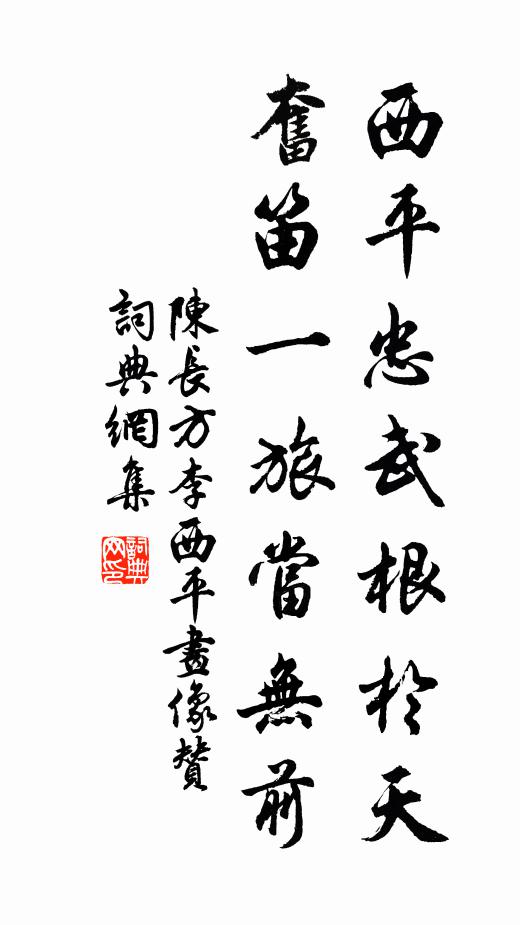 西平忠武根於天
奮笛一旅當無前
陳長方李西平畫像贊
詞典網集
詞典網印